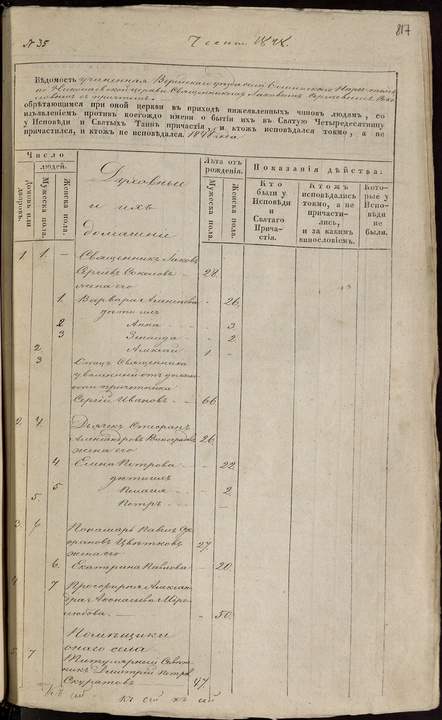 № 35
817
Вѣдомость учиненная Верейскаго уѣзда села
Николаевской церкви Священникомъ Іаковомъ Сергіевымъ
обрѣтающимся при оной церкви въ приходѣ нижеявленныхъ чиновъ людямъ, со
изъявленіемъ противъ коегождо имени о бытіи ихъ въ Святую Четыредесятницу
у Исповѣди и Святыхъ Таинъ причастія, и ктожъ исповѣдался токмо, а не
причастился, и ктожъ не исповѣдался. 1848 года.
Число
людей.
Домовъ или дворовъ.
Мужеска пола.
Женска пола.
Духовные
и ихъ
домашніе
Лѣта отъ рожденія.
Мужеска пола.
Женска пола.
Показанія дѣйства:
Кто были у Исповѣди и Святаго Причастія.
Ктожъ исповѣдались токмо, а не причастились, и за какимъ винословіемъ.
Которые у Исповѣди не были.
1 1. — Священникъ Іаковъ
Сергіевъ Соколовъ — 28. —
жена его
1. Варвара Алексѣева — 26.
дѣти ихъ
2 Анна — 3
3 Зинаида — 2
2. Алексій 1 —
3 Отецъ Священника
уволенный отъ должно
сти причетника
Сергій Ивановъ — 66
2. 4. Дьячекъ Стефанъ
Александровъ Виноградовъ 26.
жена его
4 Елена Петрова — 22
дѣти ихъ
5 Пелагія — 2
5 Петръ —
3. 6 Пономарь Павелъ Сте
фановъ Цвѣтковъ 27.
жена его
6. Екатерина Павлова — 20.
4 7 Просфирня Алексан
дра Афонасьева Миро
любова. — 50.
Помѣщики
онаго села
5 7 Титулярный Совѣт
никъ Дмитрій Петровъ
Скуратовъ 47.